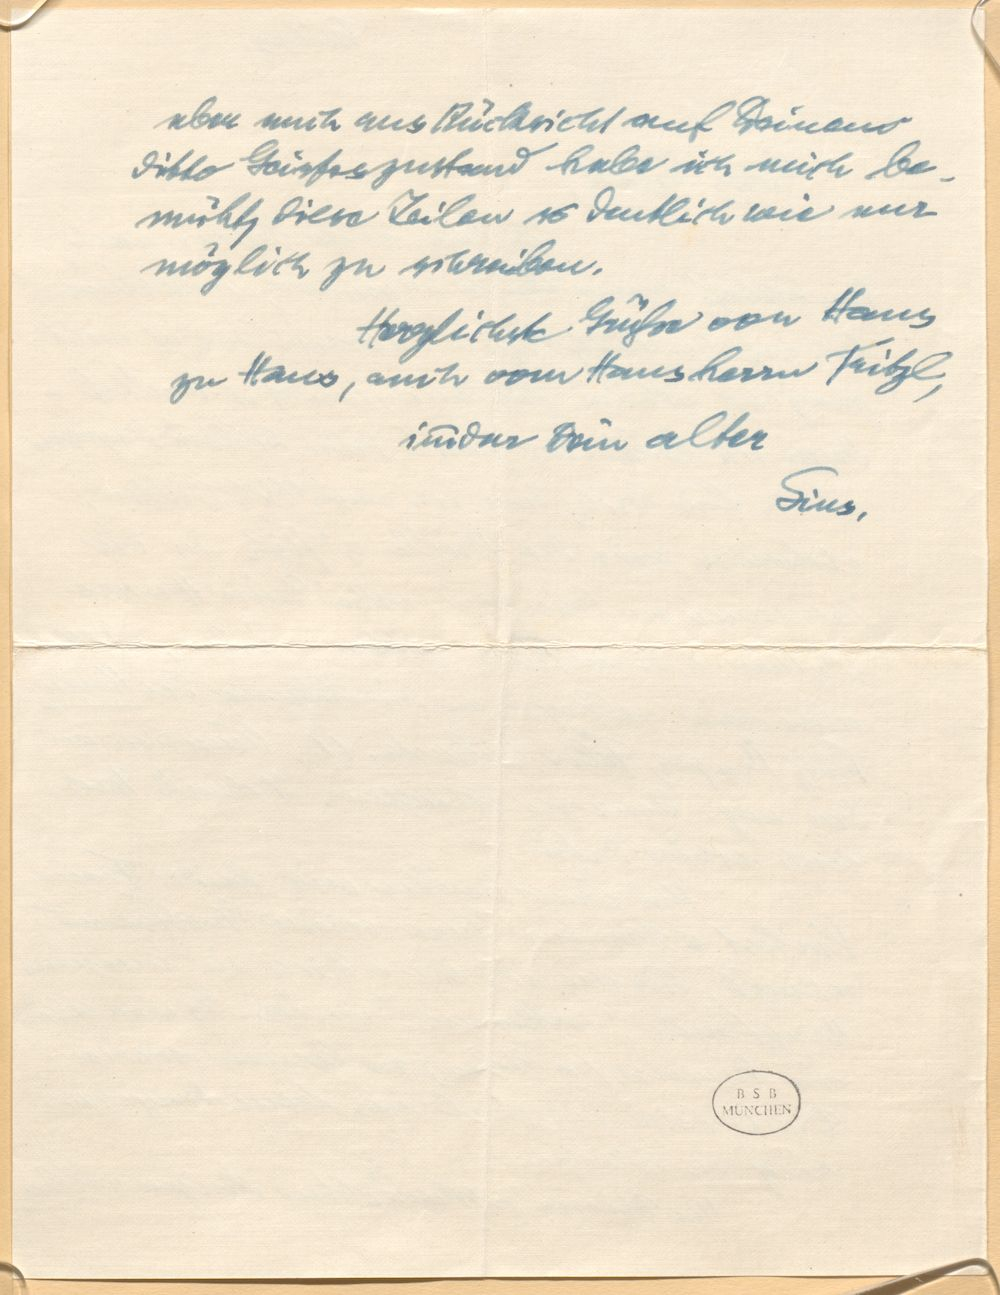 aber auch aus Rücksicht auf Deinen
ditto Geisteszustand habe ich mich be-
müht, diese Zeilen so deutlich wie nur
möglich zu schreiben.
Herzlichste Grüße von Haus
zu Haus, auch vom Hausherrn
im̅er Dein alter
B S B
MÜNCHEN